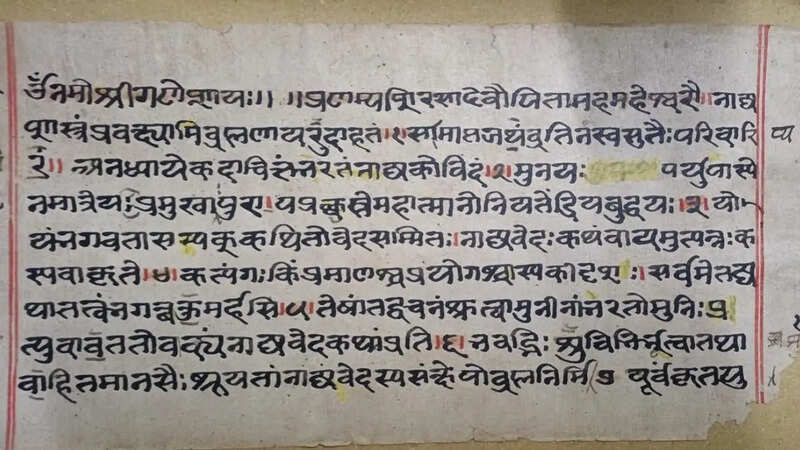 उँनमोश्रीगणेशायः।। ।।प्रणम्यशिरसादेवौपितामहमहेश्वरौ।।नाट्य
शास्त्रंप्रवक्ष्यामिब्रह्मणायदुदाहृतं।१।समाप्तजप्यंव्रतिनंस्वसुतैःपरिवारि
तं।।अनध्यायेकदाचित्तुभरतंनाट्यकोविदं।२।मुनयः पर्युपास्ये
नमात्रेयःप्रमुखापुरा।पप्रछुस्तेमहात्मानोनियतेंद्रियबुद्धयः।३।यो
यंभगवतासम्यक्कथितोवेदसंमितः।नाट्यवेदःकथंवायमुत्पन्नःक
स्यवाकृते।४।कत्यंगःकिंप्रमाणश्चप्रयोगश्चास्यकीदृशः।सर्वमेतद्य
थातत्वंभगवन्वक्तुमर्हसि।५।तेषांतद्वचनंश्रुत्वामुनीनांभरतोमुनिः।प्र
त्युवाचततोवाक्यंनाट्यवेदकथांप्रति।६।भवद्भिःशुचिभिर्भूत्वातथा
वाहितमानसैःश्रूयतांनाट्यवेदस्यसंभवोब्रह्मनिर्मि ७ पूर्वंकृतयु